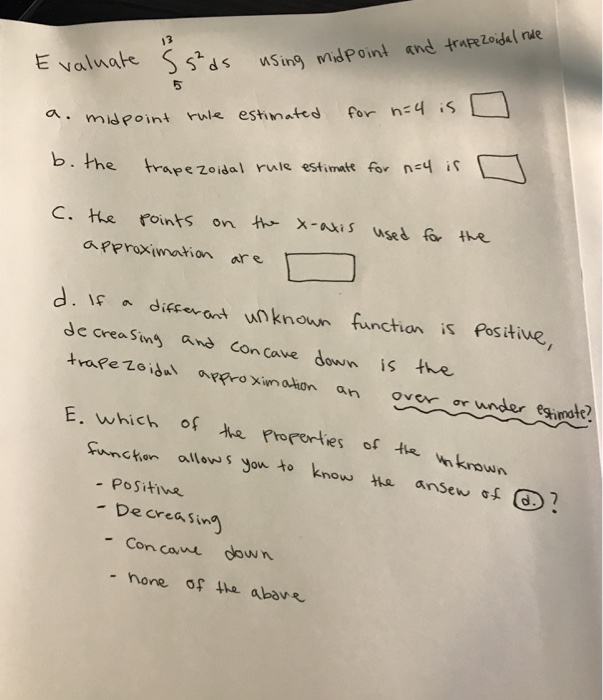 Evaluate ∫₅¹³ s² ds using midpoint and trapezoidal rule
a. midpoint rule estimated for n=4 is
b. the trapezoidal rule estimate for n=4 is
C. the points on the x-axis used for the
approximation are
d. If a different unknown function is positive,
decreasing and concave down is the
trapezoidal approximation an over or under estimate?
E. which of the properties of the unknown
function allows you to know the ansew of d.?
- Positive
- Decreasing
- Concave down
- none of the above